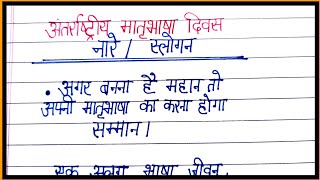 अंतर्राष्ट्रीय मातृभाषा दिवस
नारे / स्लोगन
• अगर बनना है महान तो
अपनी मातृभाषा का करना होगा
सम्मान।
एक अलग भाषा जीवन